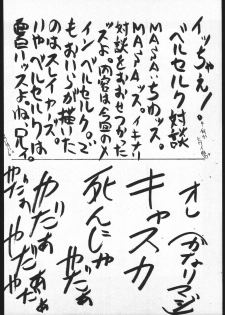 イッちゃえ！
ベルセルク対談
MASAいちゅッス。
MASAッス。イキナリ
対談をおおせつかった
ッスよ。内容は今回のメ
イン、ベルセルク。で
もおいらが描いた
のはスレイヤーズ。
いやベルセルクは
面白いッスよね
オレ（かなりマジ）
キャスカ
死んじゃ
やだぁ
やだぁぁ
やだぁ
やだぁ
やだぁ